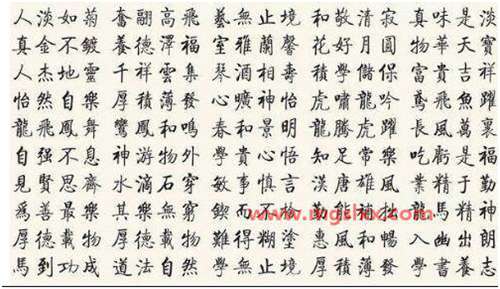 人淡如菊 奮翮高飛 藝無止境 和敬清寂 真味是淡
真金不鍍 養德澤福 室雅蘭馨 花好月圓 物華天寶
人杰地靈 千祥雲集 琴酒相壽 積學儲 富貴吉祥
怡然自樂 厚積薄發 心曠神怡 虎嘯龍吟 鳶飛魚躍
龍飛鳳舞 鸞鳳和鳴 春和景明 龍騰虎躍 長風萬裏
自强不息 神游物外 學貴心悟 知足常樂 吃虧是福
見賢思齊 水滴石穿 敏事慎言 漢唐雄風 業精于勤
為善最樂 其樂無窮 鍥而不 勤能補拙 龍馬精神
厚德載物 厚德載物 難得糊塗 惠風和暢 入幽出朗
馬到功成 道法自然 學無止境 厚積薄發 學書養志